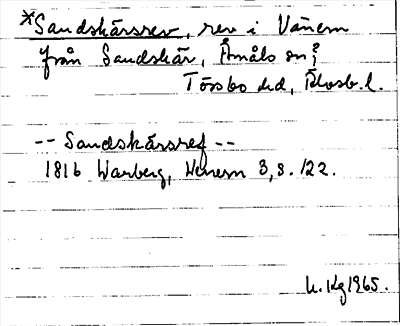 *Sandskärsrev, rev i Vänern
från Sandskär, Åmåls sn i
Tössbo hd, Älvsb. l.
-- Sandskärsref --
1816 Warberg, Wenern 3, s. 122.
h. Kg 1965.